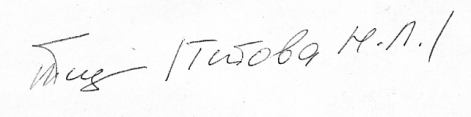 /Титова Н.Л./